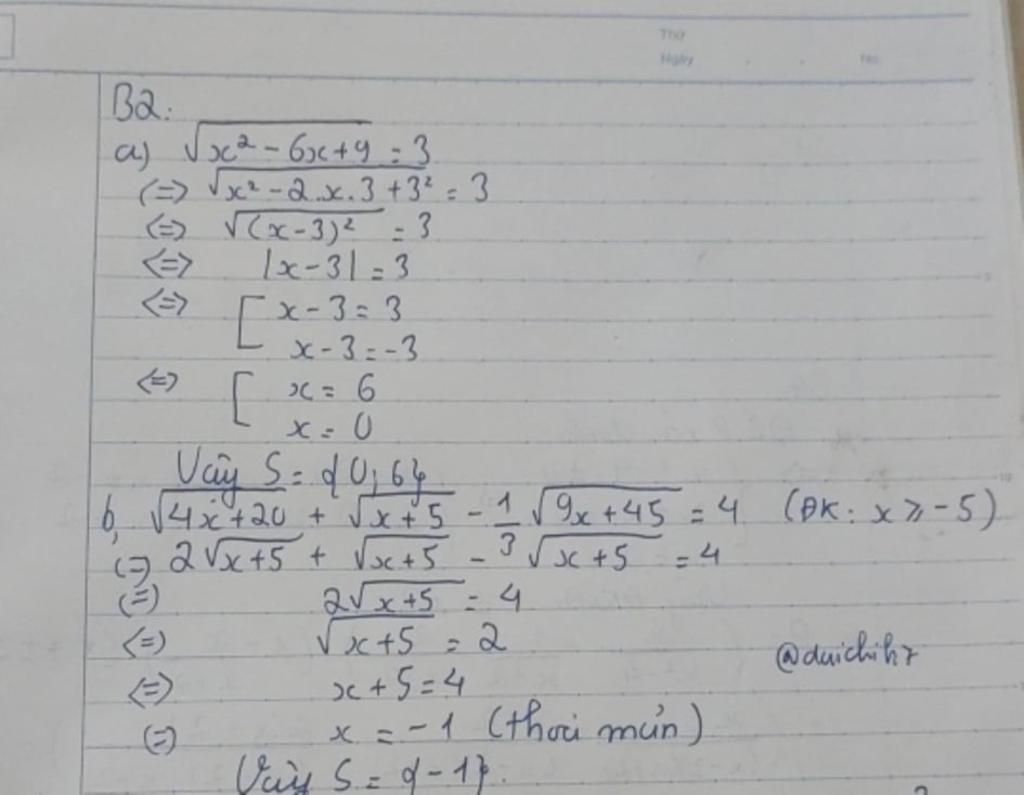 Thứ
Ngày No.
B2:
a) √(x² - 6x + 9) = 3
(=) √(x² - 2.x.3 + 3²) = 3
(=) √((x-3)²) = 3
<=> |x-3| = 3
<=> [ x - 3 = 3
x - 3 = -3
<=> [ x = 6
x = 0
Vậy S = {0; 6}
b, √(4x+20) + √(x+5) - 1/3 √(9x+45) = 4 (ĐK: x ≥ -5)
(=) 2√(x+5) + √(x+5) - √(x+5) = 4
(=) 2√(x+5) = 4
<=> √(x+5) = 2
<=> x + 5 = 4
(=) x = -1 (thoả mãn)
Vậy S = {-1}.
@daichih7